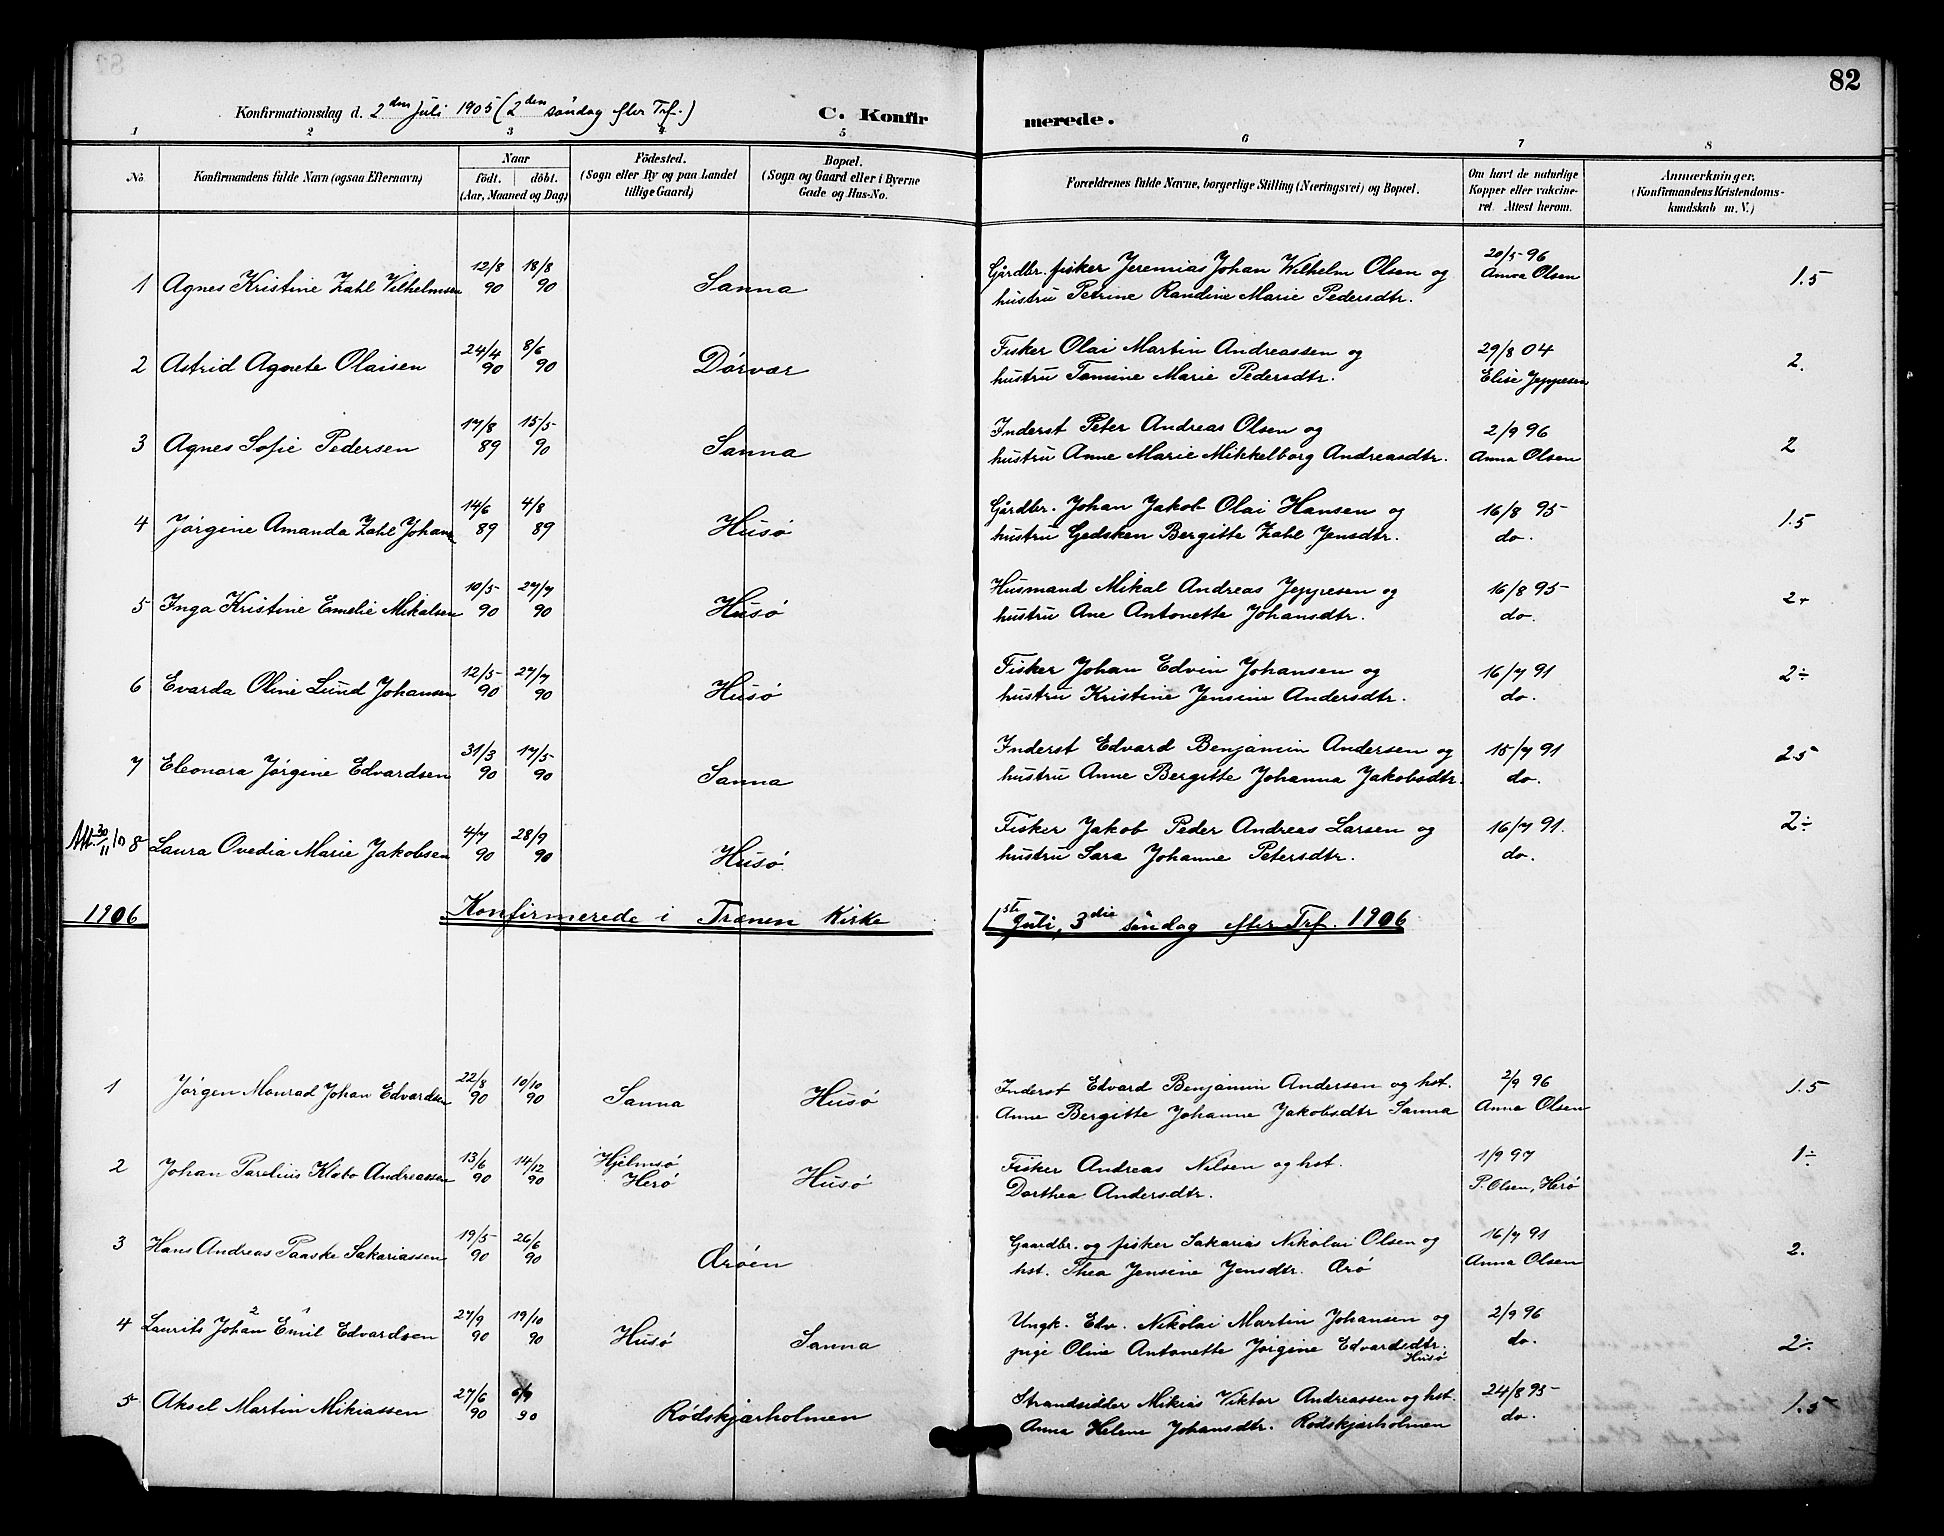 82
Konfirmationsdag d. 2den Juli 1905 (2den søndag efter Trf.) C. Konfirmerede.
1 2 3 4 5 6 7 8
No.
Konfirmandens fulde Navn (ogsaa Efternavn)
Naar
födt. döbt.
(Aar, Maaned og Dag)
Födested.
(Sogn eller By og paa Landet
tillige Gaard)
Bopæl.
(Sogn og Gaard eller i Byerne
Gade og Hus-No.
Forældrenes fulde Navne, borgerlige Stilling (Næringsvei) og Bopæl.
Om havt de naturlige
Kopper eller vakcine-
ret. Attest herom.
Anmærkninger,
(Konfirmandens Kristendoms-
kundskab m. V.)
1 Agnes Kristine Zahl Vilhelmsen 12/8 90 18/8 90 Sanna Gårdbr. fisker Jeremias Johan Wilhelm Olsen og 20/5 96 1.5
hustru Petrine Randine Marie Pedersdtr. Anna Olsen
2 Astrid Agnete Olaisen 24/4 90 8/6 90 Dørvær Fisker Olai Martin Andreassen og 29/8 04 2.
hustru Tomine Marie Pedersdtr. Elise Jeppesen
3 Agnes Sofie Pedersen 17/8 89 15/5 90 Sanna Inderst Peter Andreas Olsen og 2/9 96 2
hustru Anne Marie Mikkelborg Andreasdtr. Anna Olsen
4 Jørgine Amanda Zahl Johans 14/6 89 4/8 89 Husø Gårdbr. Johan Jakob Olai Hansen og 16/8 95 1.5
hustru Gedsken Bergitte Zahl Jensdtr. do.
5 Inga Kristine Emelie Mikalsen 10/5 90 27/7 90 Husø Husmand Mikal Andreas Jeppesen og 16/8 95 2+
hustru Ane Antonette Johansdtr. do.
6 Evarda Oline Lund Johansen 12/5 90 27/7 90 Husø Fisker Johan Edvin Johansen og 16/7 91 2÷
hustru Kristine Jensine Andersdtr. do.
7 Eleonora Jørgine Edvardsen 31/3 90 17/5 90 Sanna Inderst Edvard Benjamin Andersen og 15/7 91 2.5
hustru Anne Bergitte Johanna Jakobsdtr. do.
Att. 30/11 10 8 Laura Ovedia Marie Jakobsen 4/7 90 28/9 90 Husø Fisker Jakob Peder Andreas Larsen og 16/7 91. 2÷
hustru Sara Johanne Petersdtr. do.
1906 Konfirmerede i Trænen Kirke 1ste Juli, 3die søndag efter Trf. 1906
1 Jørgen Monrad Johan Edvardsen 22/8 90 10/10 90 Sanna Husø Inderst Edvard Benjamin Andersen og hst. 2/9 96 1.5
Anne Bergitte Johanne Jakobsdtr Sanna Anna Olsen
2 Johan Parelius Klabo Andreassen 13/6 90 14/12 90 Hjelmsø Herø Husø Fisker Andreas Nilsen og hst. 1/9 97 1÷
Dorthea Andersdtr. P. Olsen, Herø
3 Hans Andreas Paaske Sakariassen 19/5 90 26/6 90 Ærøen Gaardbr. og fisker Sakarias Nikolai Olsen og 16/7 91 2.
hst. Thea Jensine Jensdtr. Ærø Anna Olsen
4 Laurits Johan 2 Emil 1 Edvardsen 27/9 90 19/10 90 Husø Sanna Ungk. Edv. Nikolai Martin Johansen og 2/9 96 2÷
pige Oline Antonette Jørgine Edvardsdtr. Husø do.
5 Aksel Martin Mikiassen 27/6 90 6/9 90 Rødskjærholmen Strandsidder Mikias Viktor Andreassen og hst. 24/8 95 1.5
Anna Helene Johansdtr. Rødskjærholmen do.